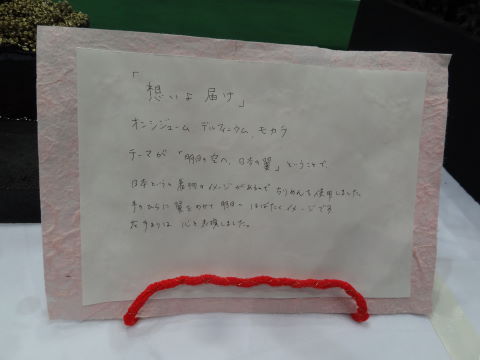 「想いよ 届け」
オンシジューム デルフィニウム、モカラ
テーマが「明日の空へ、日本の翼」ということで、
日本というの着物のイメージがあるので ちりめんを使用しました。
手のひらに翼をのせて 明日へ はばたくイメージです
丸 は 心を表現しました。